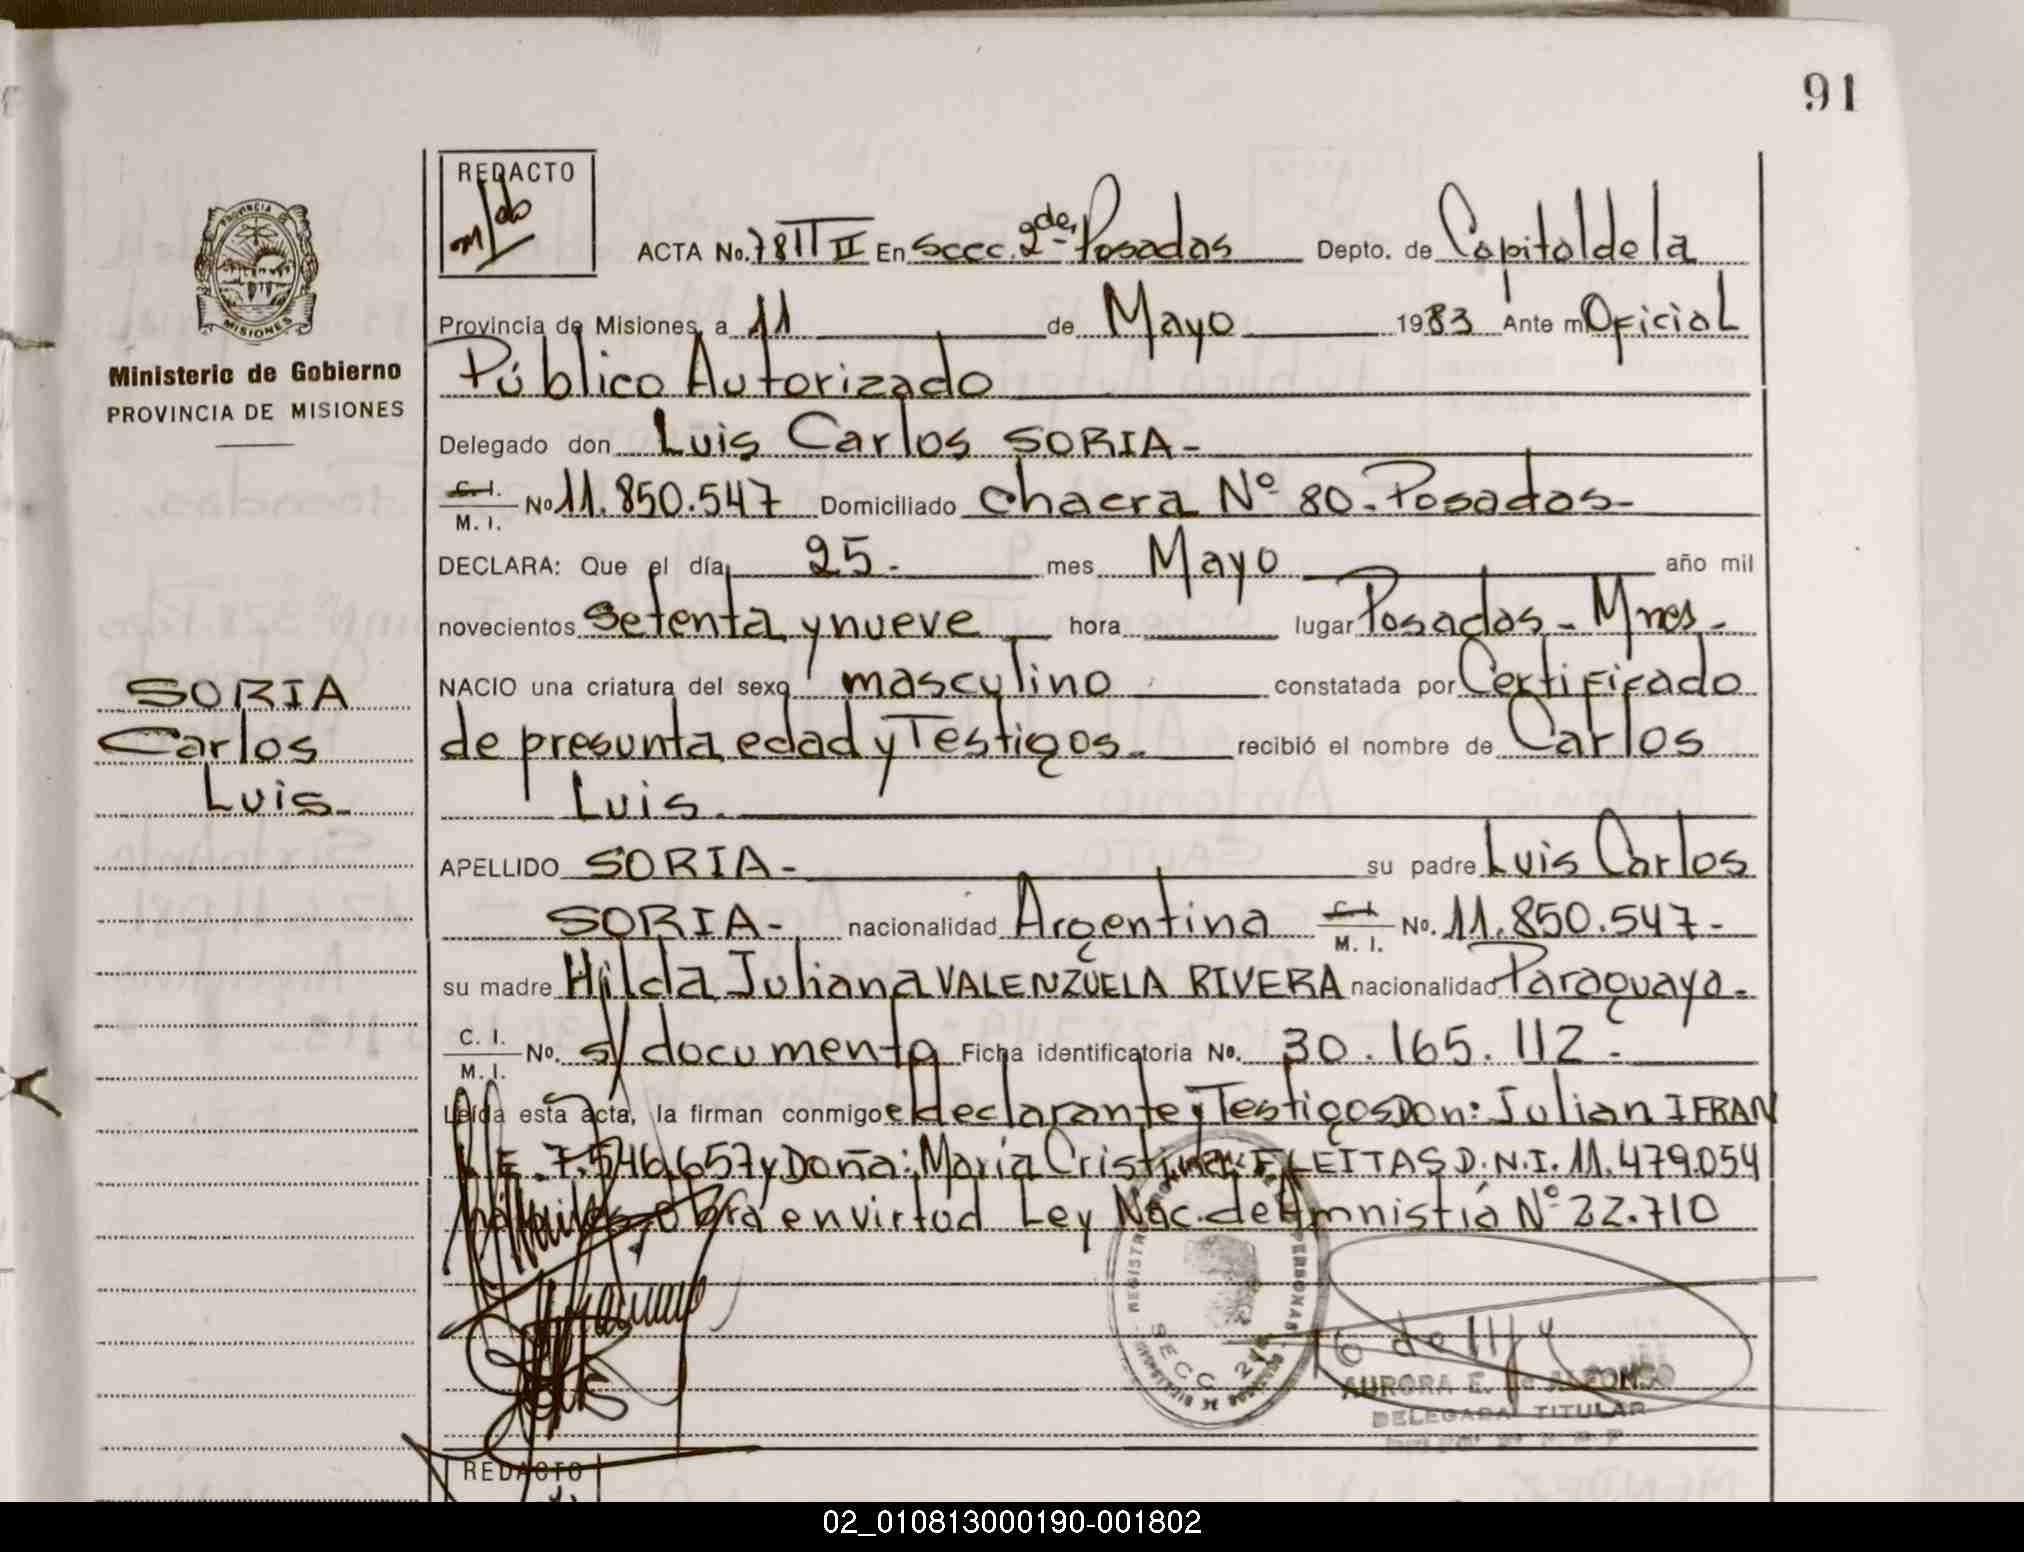 91
REDACTO
ACTA No. 78 TT II En Secc. 2da de Posadas Depto. de Capital de la
Provincia de Misiones, a 11 de Mayo 1983 Ante mi Oficial
Público Autorizado
Delegado don Luis Carlos SORIA-
C. I. / M. I. No 11.850.547 Domiciliado chacra Nº 80-Posadas-
DECLARA: Que el día 25- mes Mayo año mil
novecientos setenta y nueve hora lugar Posadas-Mnes-
NACIO una criatura del sexo masculino constatada por Certificado
de presunta edad y Testigos- recibió el nombre de Carlos
Luis.
APELLIDO SORIA- su padre Luis Carlos
SORIA- nacionalidad Argentina C. I. / M. I. No. 11.850.547-
su madre Hilda Juliana VALENZUELA RIVERA nacionalidad Paraguaya-
C. I. / M. I. No. s/documento Ficha identificatoria No. 30.165.112-
Leída esta acta, la firman conmigo el declarante y Testigos Don: Julian IFRAN
L.E. 7.546.657 y Doña: María Cristina FLEITAS D.N.I. 11.479.054
obra en virtud Ley Nac. de Amnistiá Nº 22.710
PROVINCIA DE
MISIONES
Ministerio de Gobierno
PROVINCIA DE MISIONES
SORIA
Carlos
Luis-
SECC 2
AURORA E. de ALFONSO
DELEGADA TITULAR
REDACTO
02_010813000190-001802